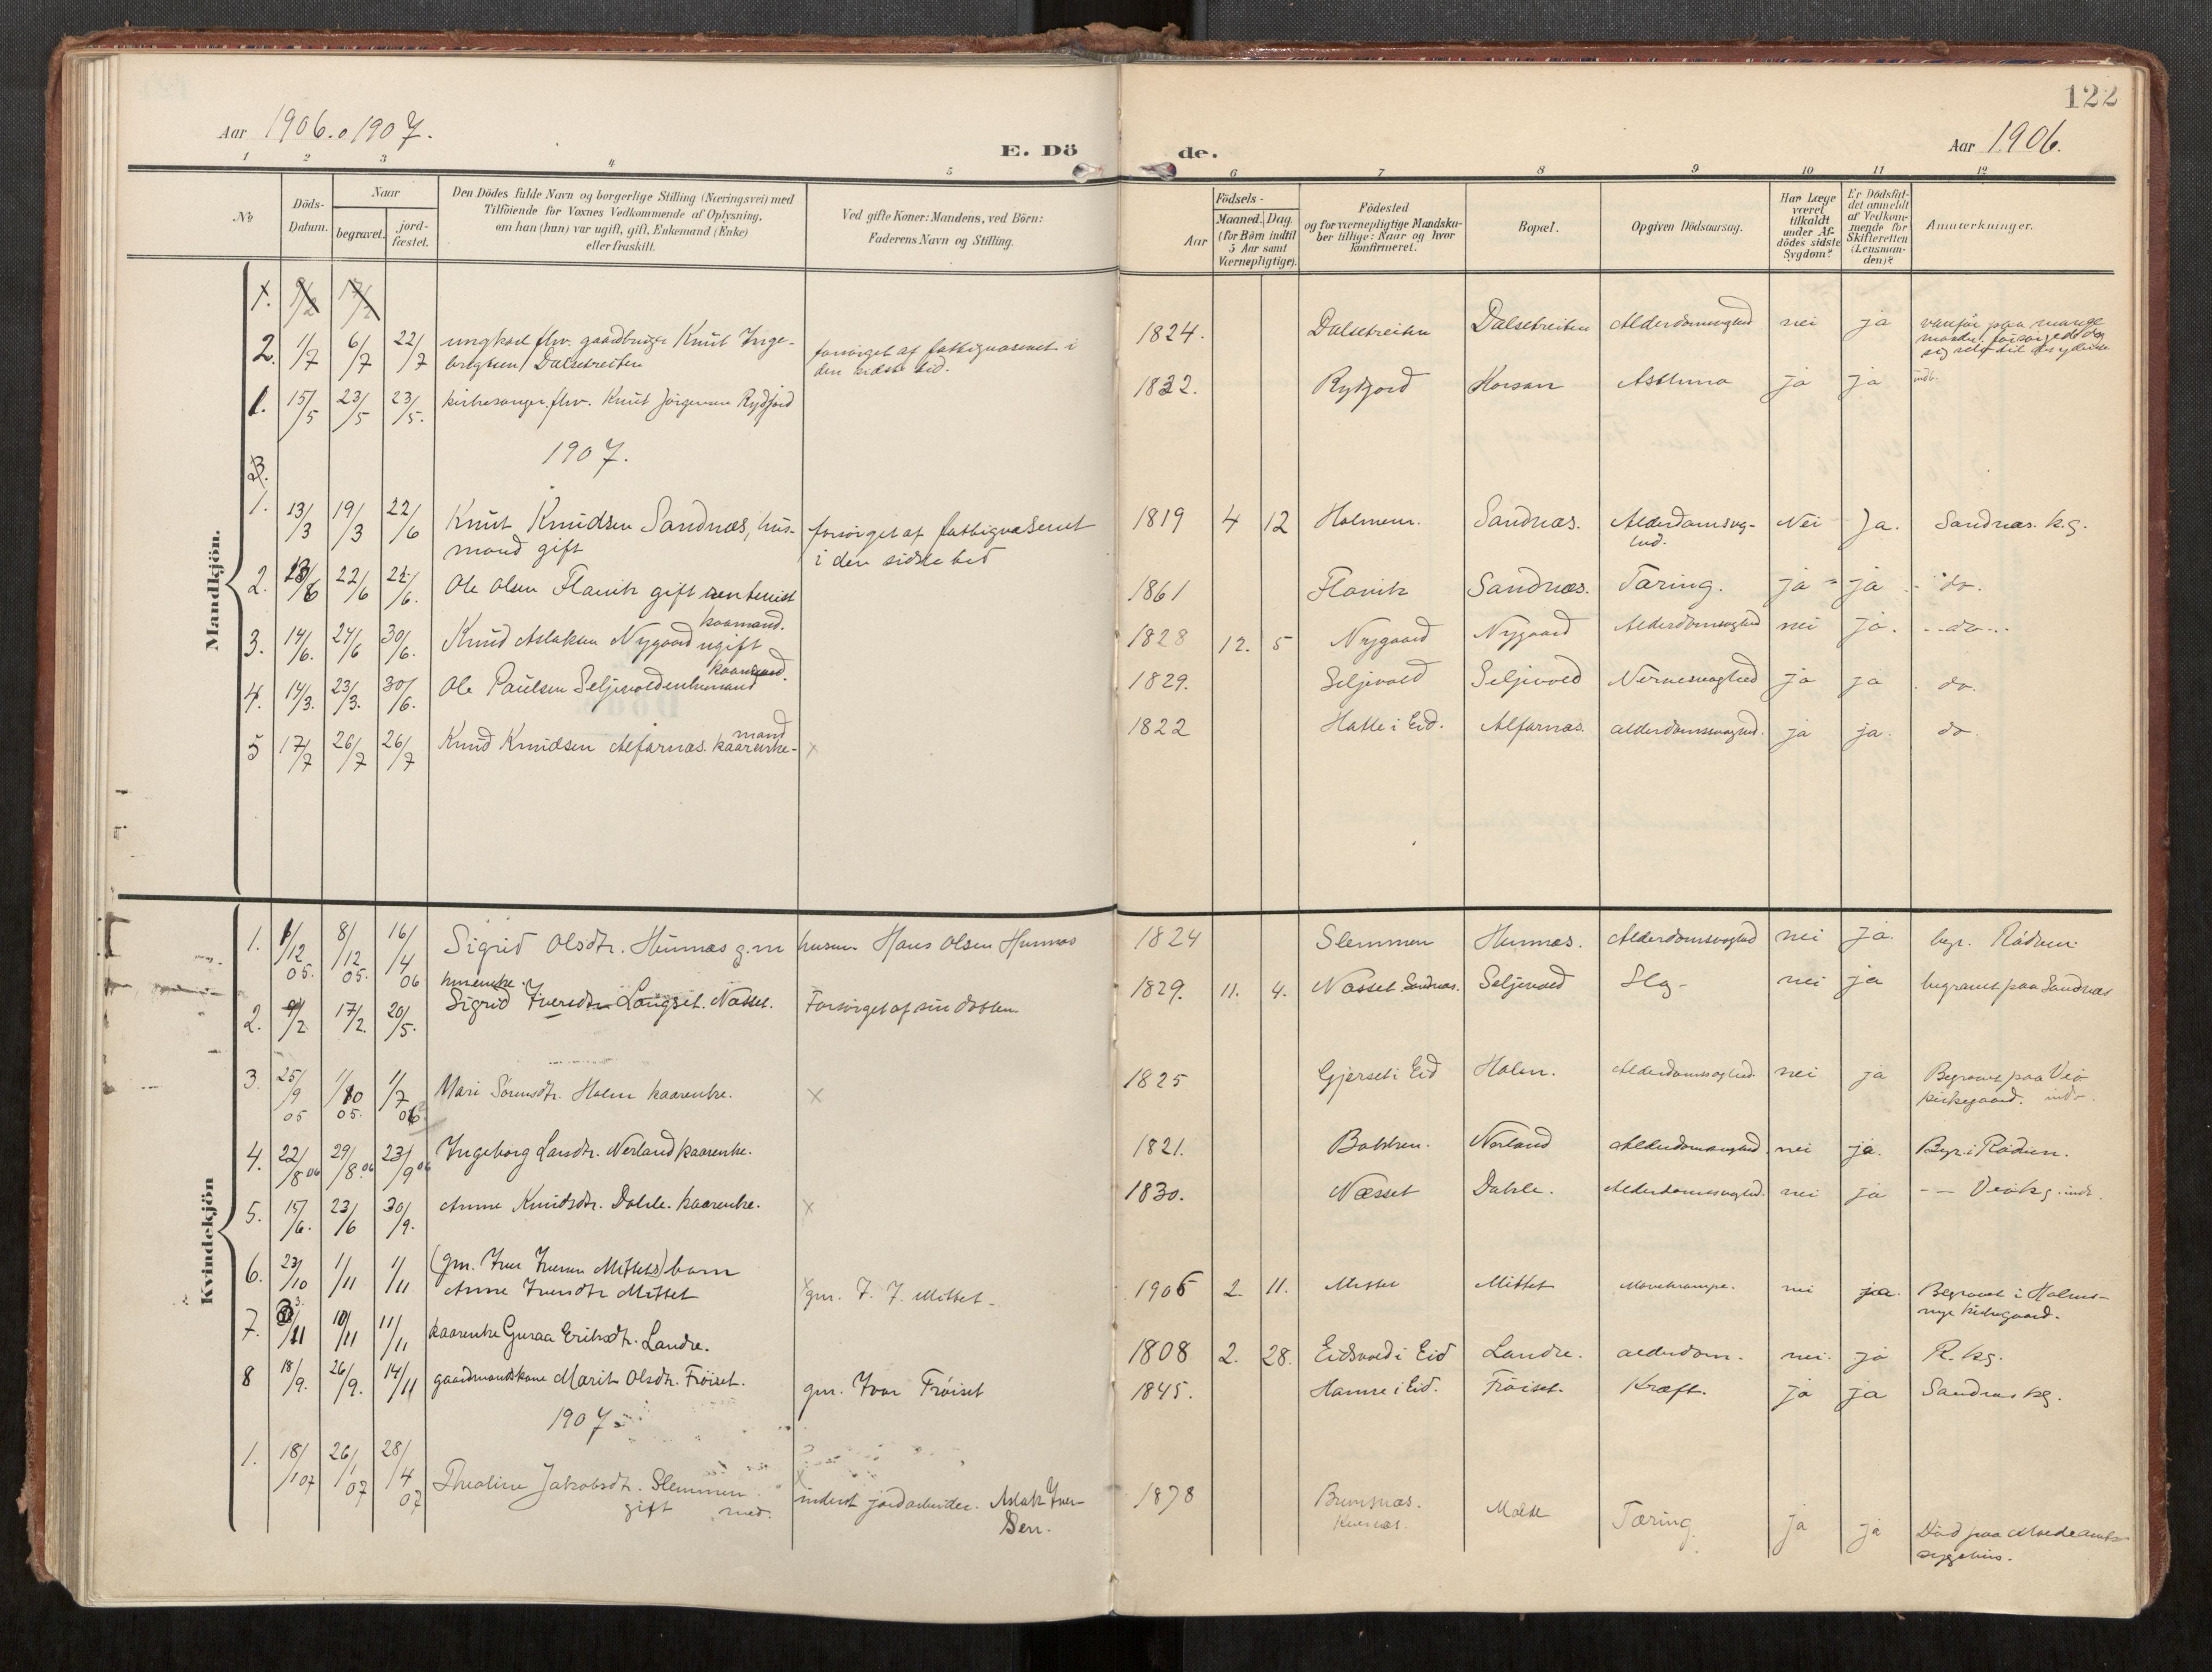 122
Aar 1906. o 1907.
E. Dö
de.
Aar 1906.
1 2 3 4 5 6 7 8 9 10 11 12
No
Döds-Datum.
Naar
begravet.
jord-fæstet.
Den Dödes fulde Navn og borgerlige Stilling (Næringsvei) med
Tilföiende for Voxnes Vedkommende af Oplysning,
om han (hun) var ugift, gift, Enkemand (Enke)
eller fraskilt.
Ved gifte Koner: Mandens, ved Börn:
Faderens Navn og Stilling.
Aar
Födsels-
Maaned. Dag.
(for Börn indtil
5 Aar samt
Værnepligtige).
Födested
og for værnepligtige Mandska-
ber tillige: Naar og hvor
konfirmeret.
Bopæl.
Opgiven Dödsaarsag.
Har Læge
været
tilkaldt
under Af-
dödes sidste
Sygdom?
Er Dödsfal-
det anmeldt
af Vedkom-
mende for
Skifteretten
(Lensman-
den)?
Anmærkninger.
Mandkjön.
1. 9/2 17/2
2. 1/7 6/7 22/7 ungkarl fhv. gaardbruger Knut Inge-
brigtsen Dalsetreiten
forsörget af fattigvæsenet i
den sidste tid.
1824. Dalsetreiten Dalsetreiten Alderdomssvaghed nei ja vanför paa mange
1. 15/5 23/5 23/5. kirkesanger fhv. Knut Jörgensen Rydjord 1832. Rydjord Korsan Asthma ja ja indb.
1907.
1. 13/3 19/3 22/6 Knut Knudsen Sandnæs, hus-
mand gift
forsörget af fattigvæsenet
i den sidste tid
1819 4 12 Holmem. Sandnæs. Alderdomssvag-
hed. Nei Ja. Sandnæs k.g.
2. 18/6 22/6 22/6. Ole Olsen Flovik gift 1861 Flovik Sandnæs. Tæring. ja ja do.
3. 14/6. 24/6 30/6. Knud Aslaksen Nygaard ugift
kaarmand.
1828 12. 5 Nygaard Nygaard Alderdomssvaghed nei ja. do
4. 14/3. 23/3. 30/6. Ole Paulsen Seljevold enkemand
kaarmand.
1829. Seljevold Seljevold Nervesvaghed ja ja do.
5 17/7 26/7 26/7 Knud Knudsen Alfarnæs. kaarenke-
mand
1822 Hatle i Eid. Alfarnæs. alderdomssvaghed. ja ja. do.
Kvindekjön
1. 1/12 05. 8/12 05. 16/4 06 Sigrid Olsdtr. Hunnæs g.m husm Hans Olsen Hunnæs 1824 Slemmen Hunnæs. Alderdomssvaghed nei ja. begr. Rödven.
2. 9/2. 17/2. 20/5. Sigrid Iversdtr Langset. Næsset. Forsörget af sin datter 1829. 11. 4. Næsset Sandnæs. Seljevold Slag- nei ja begravet paa Sandnæs
3. 25/9 05 1/10 05. 1/7 06 Mari Sörensdtr. Holen kaarenke. x 1825 Gjerset i Eid Holen. Alderdomssvaghed nei ja Begravet paa Veö
kirkegaard. indb.
4. 22/8 06 29/8 06 23/9 06 Ingeborg Larsdtr. Nerland kaarenke. 1821. Bakken. Nerland Alderdomssvaghed. nei ja. Begr. i Rödven.
5. 15/6. 23/6 30/9. Anne Knudsdtr. Dahle. kaarenke. x 1830. Næsset Dahle. Alderdomssvaghed. nei ja -- Veökg. indb.
6. 23/10 1/11 1/11 (gm. Iver Iversen Mittets) barn
Anne Iversdtr Mittet
gm. I. I. Mittet. 1906 2. 11. Mittet Mittet Mavekrampe. nei ja. Begravet i Holms-
nye kirkegaard.
7. 3/11 10/11 11/11 kaarenke Guraa Eriksdtr. Landre. 1808 2. 28. Eidsvold i Eid Landre. alderdom. nei. ja R. kg.
8 18/9. 26/9. 14/11 gaardmandskone Marit Olsdtr. Fröiset. gm. Ivar Fröiset 1845. Hamre i Eid. Fröiset. Kræft. ja ja Sandnæs kg.
1907.
1. 18/1 07 26/1 07 28/4 07 Thealine Jakobsdtr. Slemmen
gift med.
inderst jordarbeider. Aslak Iver-
sen.
1878 Bremsnæs.
Kvernæs. Molde Tæring. ja ja Död paa Molde amts
sygehus.